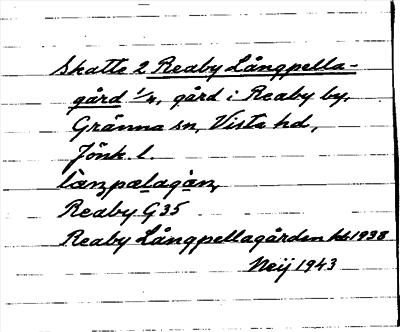 Skatte 2 Reaby Långpella-
gård 1/2, gård i Reaby by,
Gränna sn, Vista hd,
Jönk. l.
Reaby G35
Reaby Långpellagården kb 1938
Neij 1943